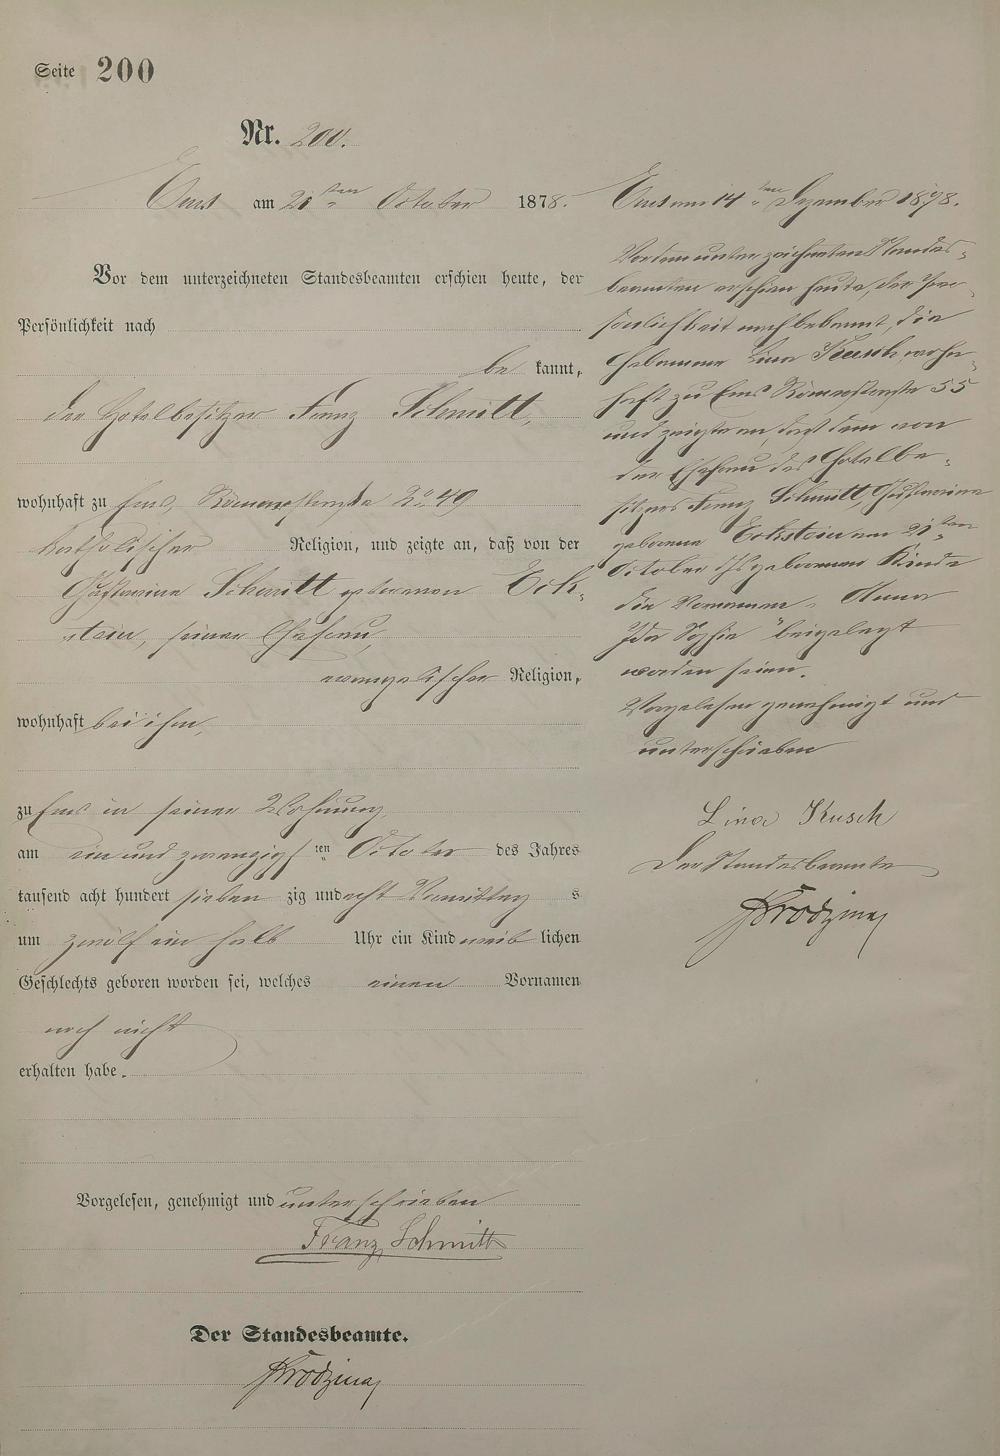 Seite 200
Nr. 200.
Ems am 21ten October 1878.
Vor dem unterzeichneten Standesbeamten erschien heute, der
Persönlichkeit nach
be kannt,
der Hotelbesitzer Franz Schmitt,
wohnhaft zu Ems, Römerstraße No 49
katholischer Religion, und zeigte an, daß von der
Schmitt geborenen Eck-
stein, seiner Ehefrau,
evangelischer Religion,
wohnhaft bei ihm,
zu Ems in seiner Wohnung
am ein und zwanzigsten October des Jahres
tausend acht hundert sieben zig und acht Vormittag s
um zwölf ein halb Uhr ein Kind weib lichen
Geschlechts geboren worden sei, welches einen Vornamen
noch nicht
erhalten habe.
Vorgelesen, genehmigt und unterschrieben
Franz Schmitt
Der Standesbeamte.
Ems am 14ten Dezember 1878.
Vor dem unterzeichneten Standes-
beamten erschien heute, der Per-
sönlichkeit nach bekannt, die
Hebamme Lina Kusch, wohn-
haft zu Ems Römerstraße 55
und zeigte an, daß dem von
der Ehefrau des Hotelbe-
sitzers Franz Schmitt,
geborene Eckstein am 21ten
October geborenen Kinde
die Vornamen „Anna
Ida Sophie" beigelegt
worden seien.
Vorgelesen genehmigt und
unterschrieben
Lina Kusch
Der Standesbeamte